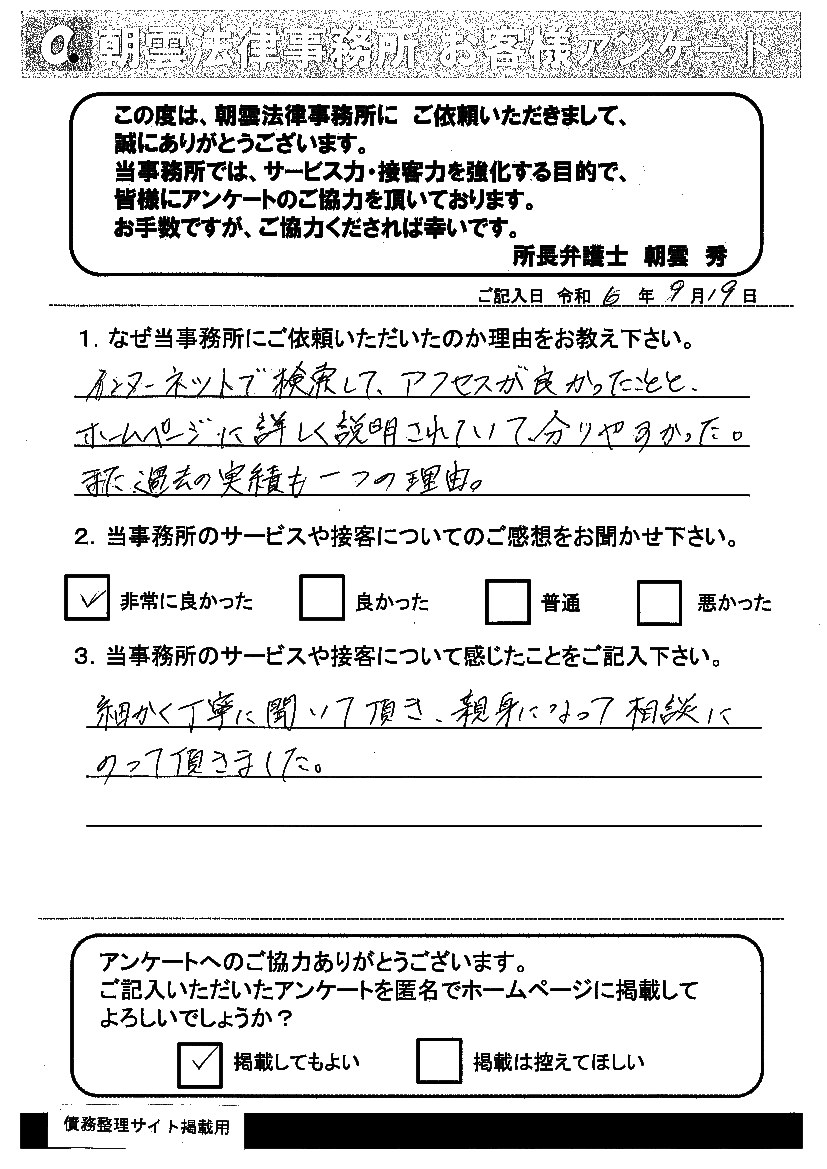 a. 朝雲法律事務所 お客様アンケート
この度は、朝雲法律事務所に ご依頼いただきまして、
誠にありがとうございます。
当事務所では、サービス力・接客力を強化する目的で、
皆様にアンケートのご協力を頂いております。
お手数ですが、ご協力くだされば幸いです。
所長弁護士 朝雲 秀
ご記入日 令和 6 年 9 月 19 日
1. なぜ当事務所にご依頼いただいたのか理由をお教え下さい。
インターネットで検索して、アクセスが良かったことと、
ホームページに詳しく説明されていて、分りやすかった。
また過去の実績も一つの理由。
2. 当事務所のサービスや接客についてのご感想をお聞かせ下さい。
非常に良かった 良かった 普通 悪かった
3. 当事務所のサービスや接客について感じたことをご記入下さい。
細かく丁寧に聞いて頂き、親身になって相談に
のって頂きました。
アンケートへのご協力ありがとうございます。
ご記入いただいたアンケートを匿名でホームページに掲載して
よろしいでしょうか？
掲載してもよい 掲載は控えてほしい
債務整理サイト掲載用